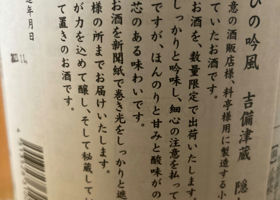 びの吟風　吉備津蔵　隠
意の酒販店様、料亭様用に製造する小
ていたお酒です。
お酒を、数量限定で出荷いたします。
しっかりと吟味し、細心の注意を払って
ですが、ほんのりと甘みと酸味がの
芯のある味わいです。
お酒を新聞紙で巻き光をしっかりと遮
様の所までお届けいたします。
が力を込めて醸し、そして秘蔵して
て置きのお酒です。
年月日